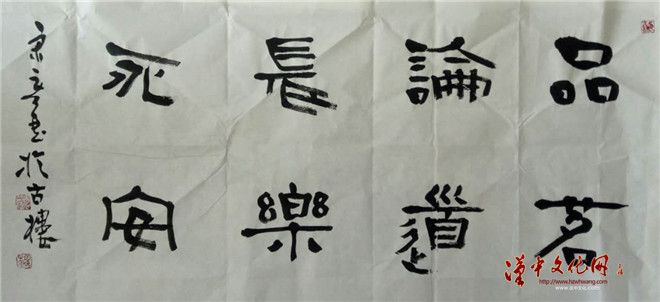 品茗
論道
長樂
永安
書於古樓
漢中文化网
www.hzwhwang.com